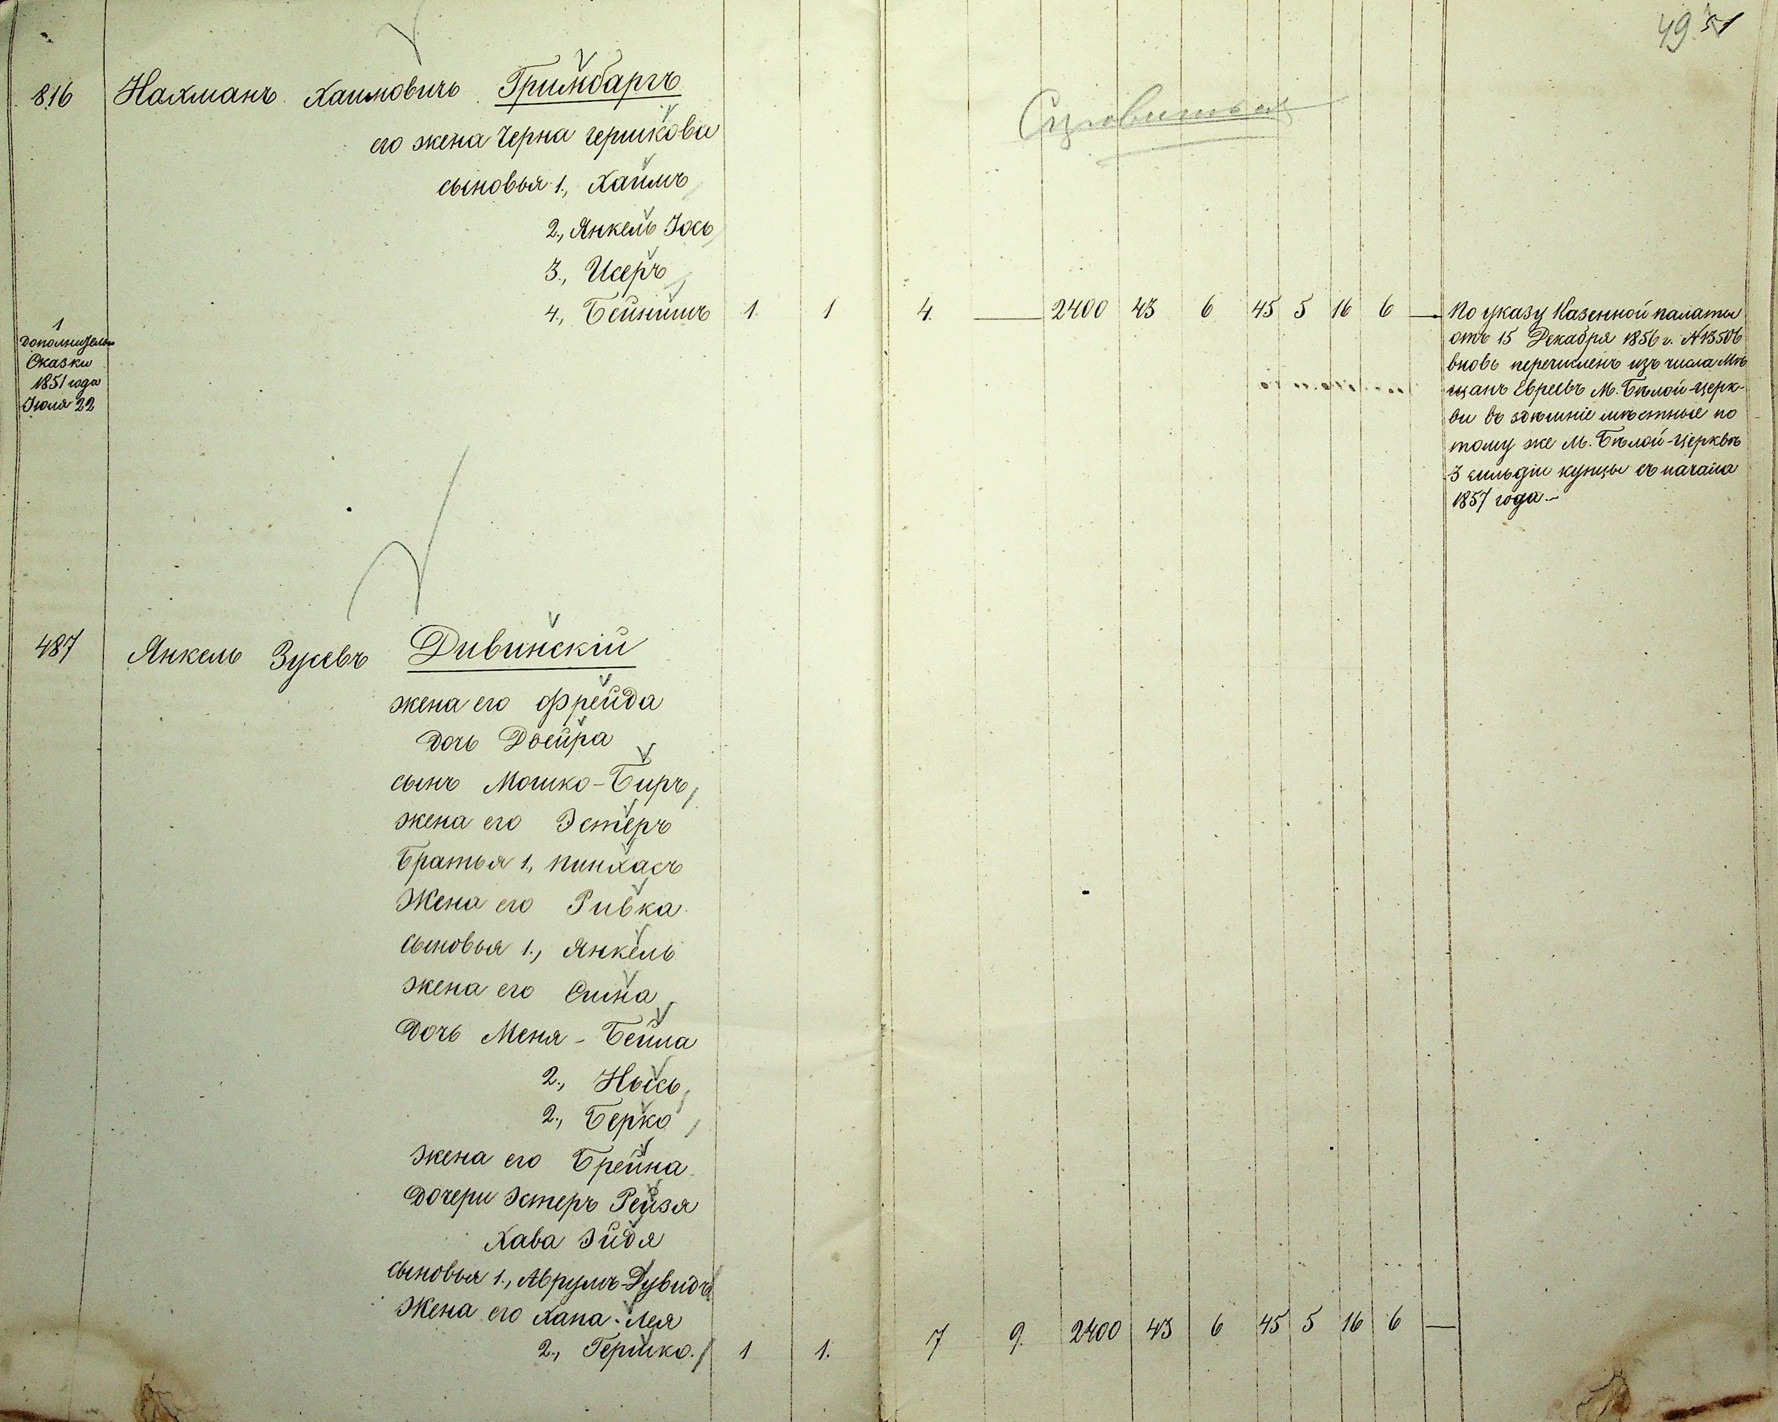 49 51
816 Нахманъ Хаимовичъ Гринбаргъ
его жена Черна Гершкова
сыновья 1., Хаимъ
2., Янкель Iось
3., Исеръ
4., Бейнишъ 1 1 4. — 2400 43 6 45 5 16 6 —
1
Дополнительн
Сказки
1851 года
Iюля 22
По указу Казенной палаты
отъ 15 Декабря 1856 г. №13506
вновь перечисленъ изъ числа Мѣ
щанъ Евреевъ М. Бѣлой-Церк-
ви въ здѣшнiе мѣстные по
тому же М. Бѣлой-Церквѣ
3 гильдiи купцы съ начала
1857 года.—
487 Янкель Зусевъ Дивинскiй
жена его Фрейда
дочь Двейра
сынъ Мошко-Биръ
жена его Эстеръ
Братья 1., Пинхасъ
Жена его Ривка
сыновья 1., Янкель
жена его Сима
Дочь Меня-Бейла
2., Нысь
2., Берко
жена его Брейна
дочери Эстеръ Рейзя
Хава Зидя
сыновья 1., Аврумъ-Дувидъ
Жена его Хана-Лея
2., Гершко. 1 1. 7 9. 2400 43 6 45 5 16 6 —